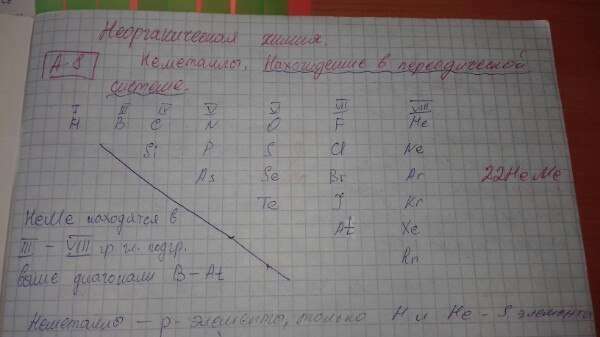 Неорганическая химия.
A-8 Неметаллы. Нахождение в периодической
системе.
I III IV V V VII VIII
H B C N O F He
Si P S Cl Ne
As Se Br Ar 22НеМе
Te I Kr
At Xe
Rn
НеМе находятся в
III – VIII гр. гл. подгр.
выше диагонали B – At
Неметаллы – p- элементы, только H и He – S элементы